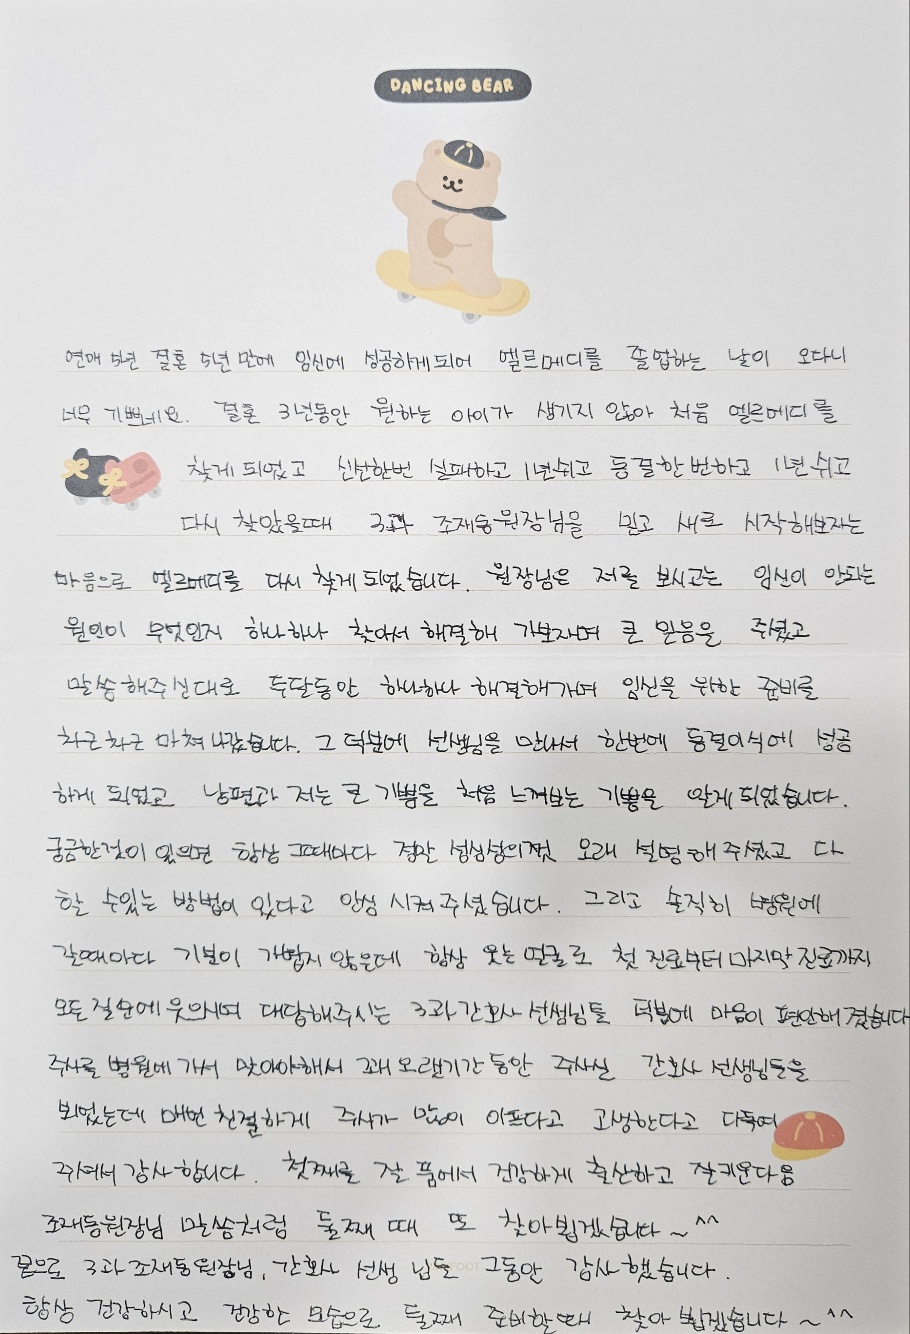 DANCING BEAR
연애 5년 결혼 5년 만에 임신에 성공하게되어 엘르메디를 졸업하는 날이 오다니
너무 기쁘네요. 결혼 3년동안 원하는 아이가 생기지 않아 처음 엘르메디를
찾게 되었고 신선한번 실패하고 1년쉬고 동결한번하고 1년쉬고
다시 찾았을때 3과 조재동원장님을 믿고 새로 시작해보자는
마음으로 엘르메디를 다시 찾게 되었습니다. 원장님은 저를 보시고는 임신이 안되는
원인이 무엇인지 하나하나 찾아서 해결해 가보자며 큰 믿음을 주셨고
말씀해주신대로 두달동안 하나하나 해결해가며 임신을 위한 준비를
차근차근 마쳐나갔습니다. 그 덕분에 선생님을 만나서 한번에 동결이식에 성공
하게 되었고 남편과 저는 큰 기쁨을 처음 느껴보는 기쁨을 알게 되었습니다.
궁금한것이 있으면 항상 그때마다 정말 성심성의껏 오래 설명해주셨고 다
할 수있는 방법이 있다고 안심 시켜주셨습니다. 그리고 솔직히 병원에
갈때마다 기분이 가볍지 않은데 항상 웃는 얼굴로 첫 진료부터 마지막 진료까지
모든 질문에 웃으시며 대답해주시는 3과 간호사 선생님들 덕분에 마음이 편안해졌습니다
주사를 병원에 가서 맞아야해서 꽤 오랜기간 동안 주사실 간호사 선생님들을
뵈었는데 매번 친절하게 주사가 많이 아프다고 고생한다고 다독여
주셔서 감사합니다. 첫째를 잘 품에서 건강하게 출산하고 잘키운다음
조재동원장님 말씀처럼 둘째 때 또 찾아뵙겠습니다~^^
끝으로 3과 조재동원장님, 간호사 선생님들 그동안 감사했습니다.
항상 건강하시고 건강한 모습으로 둘째 준비할때 찾아 뵙겠습니다~^^